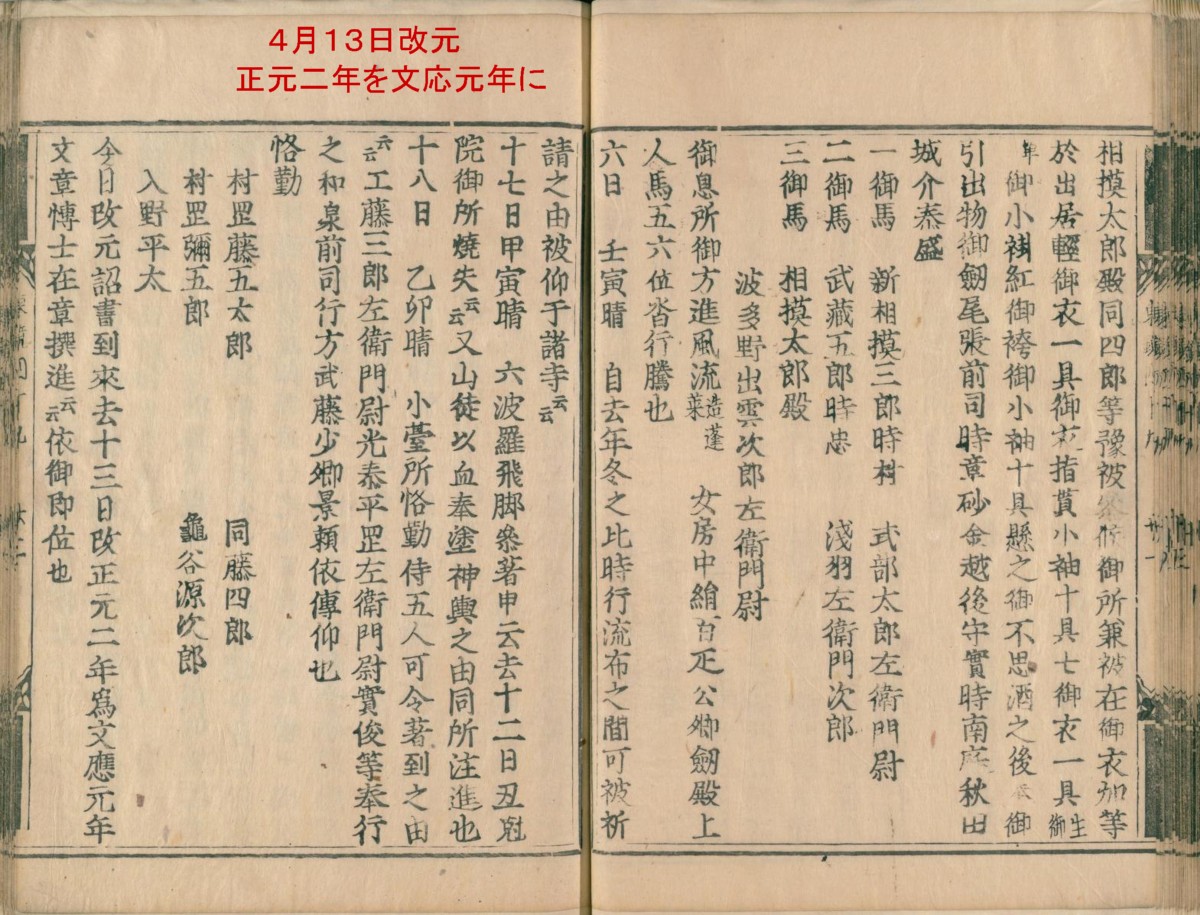 4月13日改元
正元二年を文応元年に
相摸太郎殿同四郎等豫被參候御所兼被在御衣加等
於出居輕御衣一具御衣指貫小袖十具七御衣一具生御
単御小褂紅御袴御小袖十具懸之御不思酒之後御
引出物御劔尾張前司時章砂金越後守實時南庭秋田
城介泰盛
一御馬 新相摸三郎時村 式部太郎左衛門尉
二御馬 武藏五郎時忠 淺羽左衛門次郎
三御馬 相摸太郎殿
波多野出雲次郎左衛門尉
御息所御方進風流造蓬萊 女房中絹百疋公卿劔殿上
人馬五六位沓行騰也
六日 壬寅晴 自去年冬之比時行流布之間可被祈
請之由被仰于諸寺云云
十七日甲寅晴 六波羅飛脚參著申云去十二日丑尅
院御所燒失云云又山徒以血奉塗神輿之由同所注進也
十八日 乙卯晴 小臺所恪勤侍五人可令著到之由
云云工藤三郎左衛門尉光泰平罡左衛門尉實俊等奉行
之和泉前司行方武藤少卿景頼依傳仰也
恪勤
村罡藤五太郎 同藤四郎
村罡彌五郎 龜谷源次郎
入野平太
今日改元詔書到來去十三日改正元二年爲文應元年
文章愽士在章撰進云云依御即位也